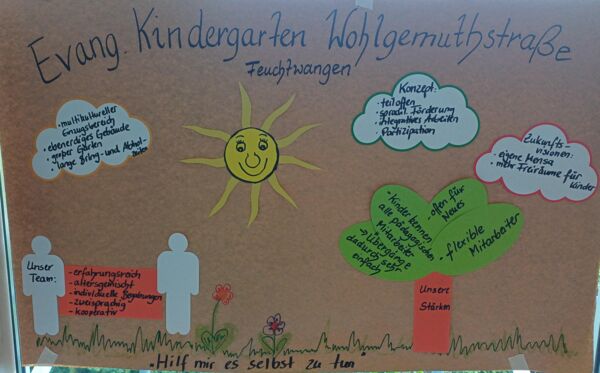 Evang. Kindergarten Wohlgemuthstraße
Feuchtwangen
- multikultureller
Einzugsbereich
- ebenerdiges Gebäude
- großer Garten
- lange Bring- und Abhol-
zeiten
Konzept:
- teiloffen
- sprachl. Förderung
- integratives Arbeiten
- Partizipation
Zukunfts-
visionen:
- eigene Mensa
- mehr Freiräume für
Kinder
- Kinder kennen
alle pädagogischen
Mitarbeiter
→ Übergänge
dadurch sehr
einfach
- offen für
Neues
- flexible
Mitarbeiter
Unsere
Stärken
Unser
Team:
- erfahrungsreich
- altersgemischt
- individuelle Begabungen
- zweisprachig
- kooperativ
"Hilf mir es selbst zu tun"